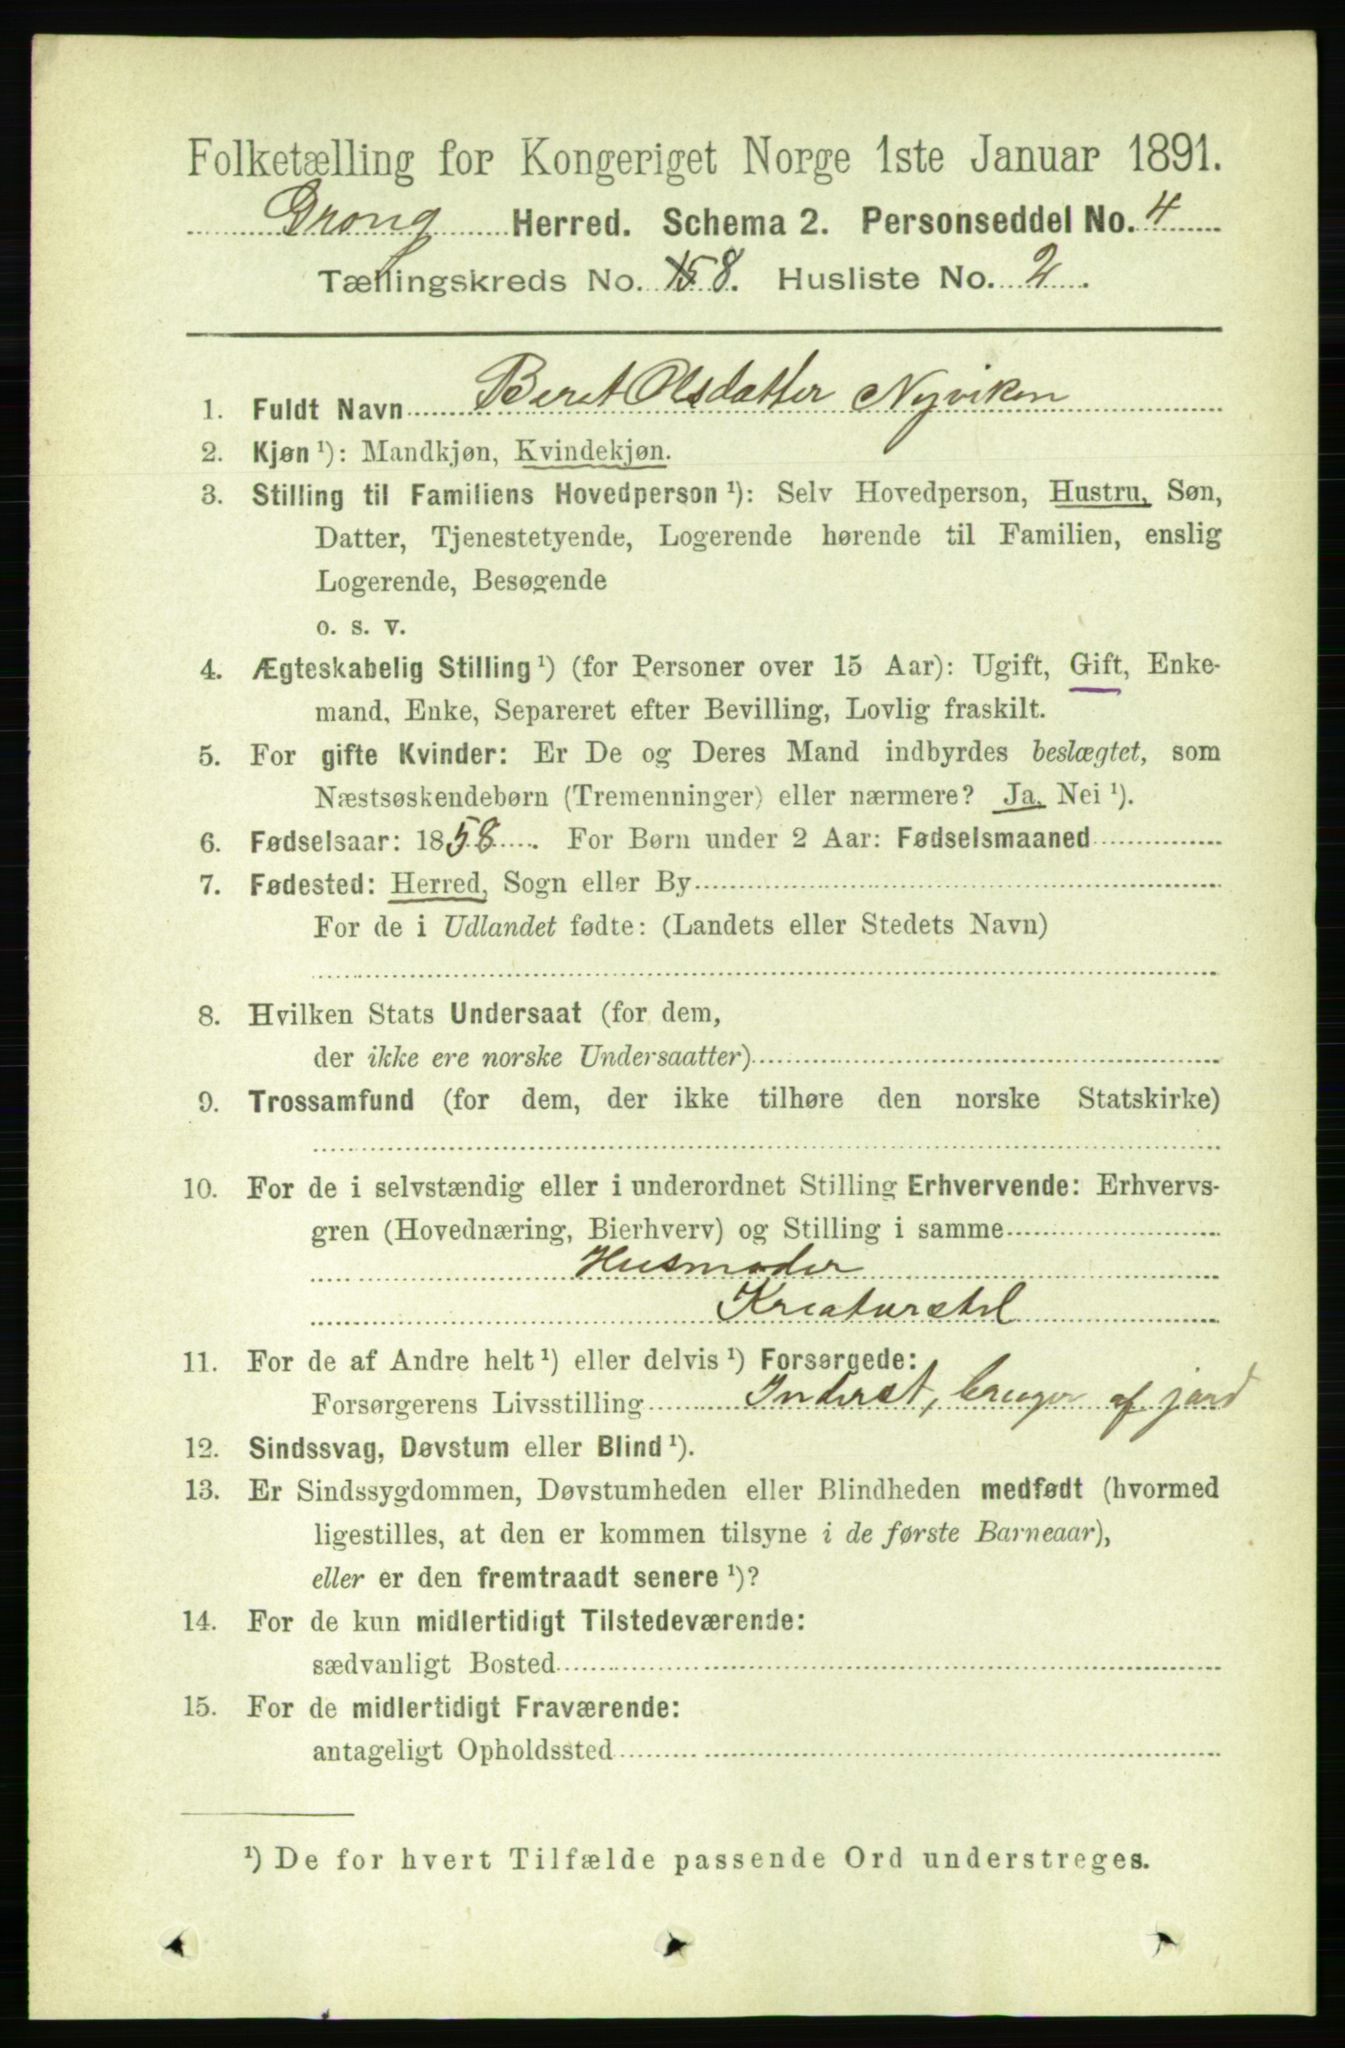 Folketælling for Kongeriget Norge 1ste Januar 1891.
Grong Herred. Schema 2. Personseddel No. 4
Tællingskreds No. 8. Husliste No. 2.
1. Fuldt Navn Beret Olsdatter Nyviken
2. Kjøn ¹): Mandkjøn, Kvindekjøn.
3. Stilling til Familiens Hovedperson ¹): Selv Hovedperson, Hustru, Søn,
Datter, Tjenestetyende, Logerende hørende til Familien, enslig
Logerende, Besøgende
o. s. v.
4. Ægteskabelig Stilling ¹) (for Personer over 15 Aar): Ugift, Gift, Enke-
mand, Enke, Separeret efter Bevilling, Lovlig fraskilt.
5. For gifte Kvinder: Er De og Deres Mand indbyrdes beslægtet, som
Næstsøskendebørn (Tremenninger) eller nærmere? Ja, Nei ¹).
6. Fødselsaar: 1858. For Børn under 2 Aar: Fødselsmaaned
7. Fødested: Herred, Sogn eller By
For de i Udlandet fødte: (Landets eller Stedets Navn)
8. Hvilken Stats Undersaat (for dem,
der ikke ere norske Undersaatter)
9. Trossamfund (for dem, der ikke tilhøre den norske Statskirke)
10. For de i selvstændig eller i underordnet Stilling Erhvervende: Erhvervs-
gren (Hovednæring, Bierhverv) og Stilling i samme
Husmoder
Kreaturstel
11. For de af Andre helt ¹) eller delvis ¹) Forsørgede:
Forsørgerens Livsstilling Inderst, bruger af jord
12. Sindssvag, Døvstum eller Blind ¹).
13. Er Sindssygdommen, Døvstumheden eller Blindheden medfødt (hvormed
ligestilles, at den er kommen tilsyne i de første Barneaar),
eller er den fremtraadt senere ¹)?
14. For de kun midlertidigt Tilstedeværende:
sædvanligt Bosted
15. For de midlertidigt Fraværende:
antageligt Opholdssted
¹) De for hvert Tilfælde passende Ord understreges.